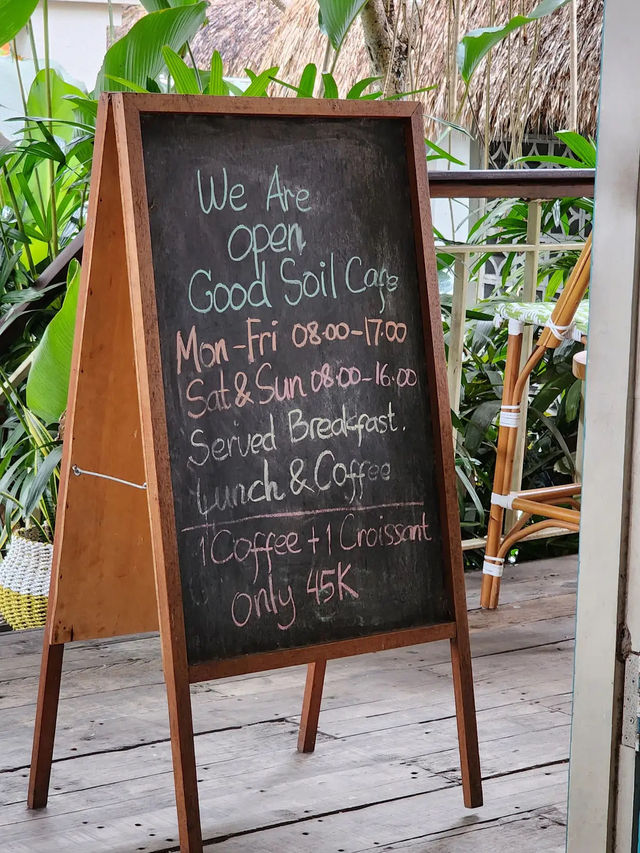 We Are
Open
Good Soil Cafe
Mon-Fri 08.00-17.00
Sat & Sun 08.00-16.00
Served Breakfast.
Lunch & Coffee
1 Coffee + 1 Croissant
only 45K